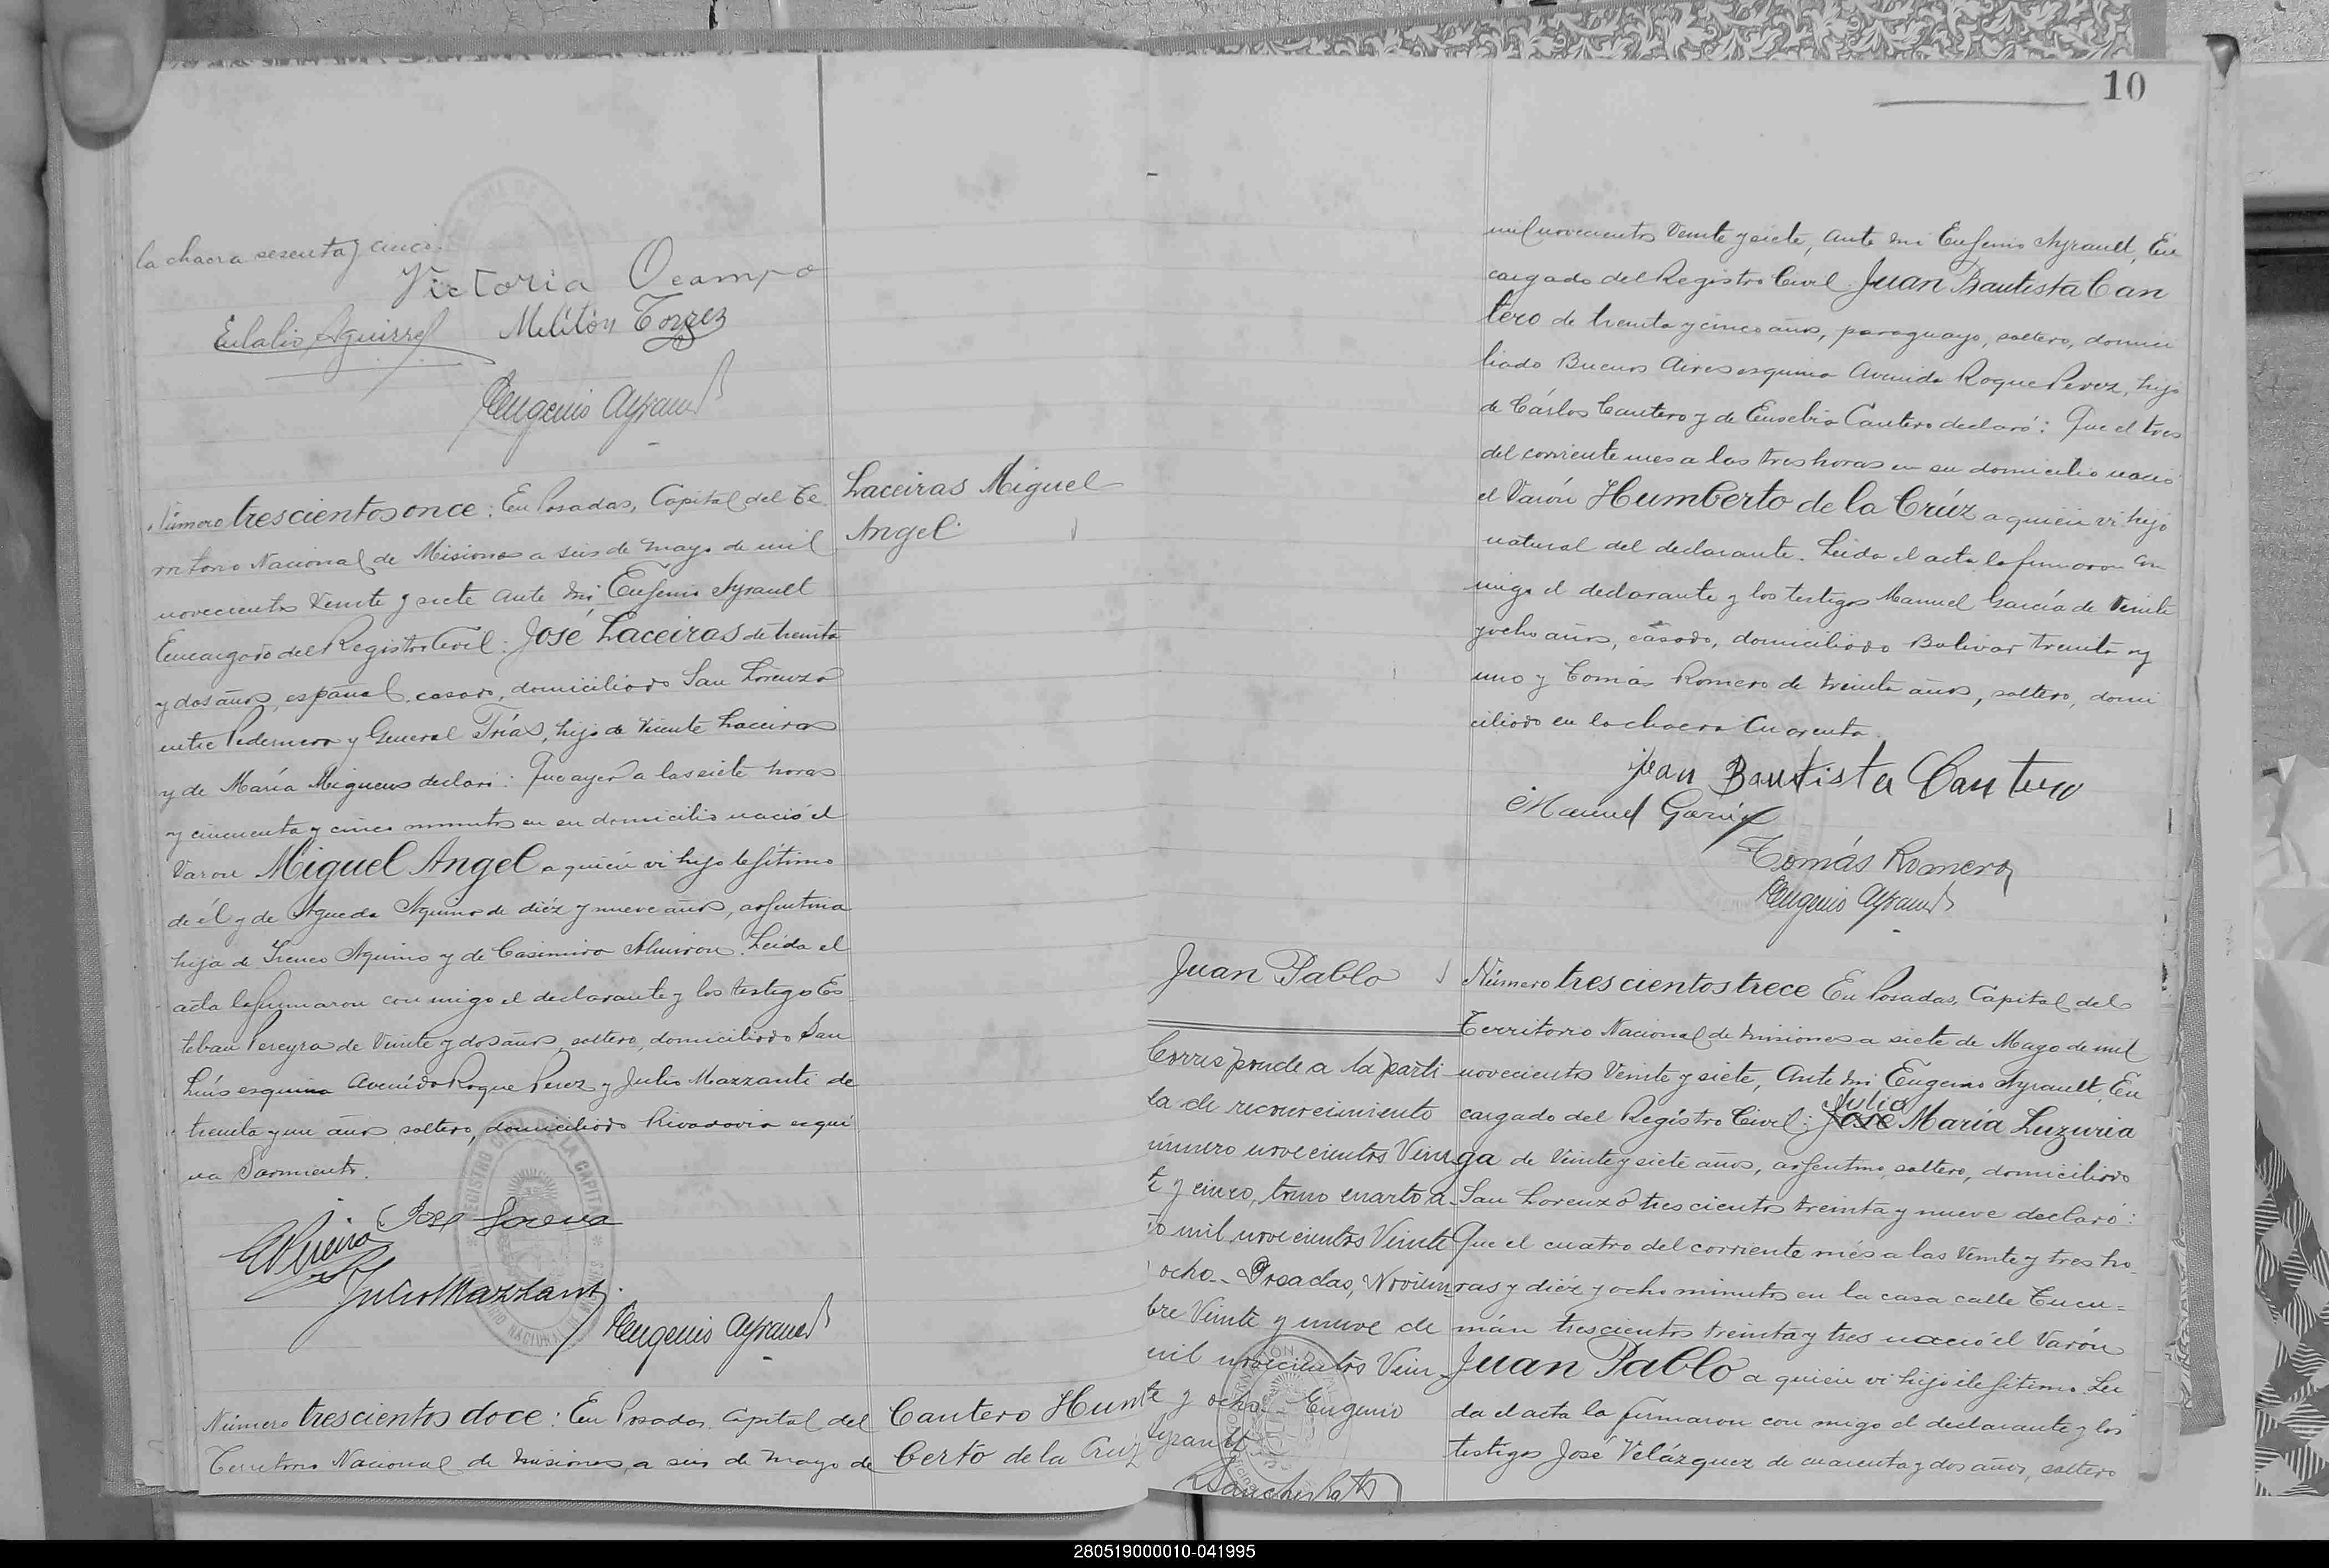 la chacra sesenta y cinco.
Victoria Ocampo
Eulalio Aguirre Melitón Torrez
Eugenio Ayrault
Número trescientos once: En Posadas, Capital del Te
rritorio Nacional de Misiones a seis de Mayo de mil
novecientos Veinte y siete ante mi Eugenio Ayrault
Encargado del Registro Civil: José Laceiras de treinta
y dos años, español, casado, domiciliado San Lorenzo
entre Pedernera y General Frías, hijo de Vicente Laceiras
y de María Migueus declaró: Que ayer a las siete horas
y cincuenta y cinco minutos en su domicilio nació el
Varon Miguel Angel a quien vi hijo lejítimo
de él y de Agueda Aquino de diéz y nueve años, arjentina
hija de Ireneo Aquino y de Casimira Almiron. Leida el
acta la firmaron con migo el declarante y los testigo Es
teban Pereyra de Veinte y dos años, soltero, domiciliado San
Luis esquina Avenida Roque Perez y Julio Mazzanti de
treinta y un años soltero, domiciliado Rivadavia esqui
na Sarmiento.
José
Julio Mazzanti
Eugenio Ayrault
Número trescientos doce: En Posadas, Capital del
Territorio Nacional de Misiones, a seis de Mayo de
Laceiras Miguel
Angel
Cantero Hum
berto de la Cruz
10
mil novecientos Veinte y siete, ante mi Eugenio Ayrault, En
cargado del Registro Civil: Juan Bautista Can
tero de treinta y cinco años, paraguayo, soltero, domici
liado Buenos Aires esquina Avenida Roque Perez, hijo
de Cárlos Cantero y de Eusebia Cantero declaró: Que el tres
del corriente mes a las tres horas en su domicilio nació
el Varón Humberto de la Crúz a quien vi hijo
natural del declarante. Leida el acta la firmaron con
migo el declarante y los testigos Manuel García de Veinte
y ocho años, casado, domiciliado Bolivar treinta y
uno y Tomás Romero de treinta años, soltero, domi
ciliado en la chacra Cuarenta.
Juan Bautista Cantero
Manuel García
Tomás Romero
Eugenio Ayrault
Juan Pablo
Corresponde a la parti
da de reconocimiento
número novecientos Vein
te y cinco, tomo cuarto a
ño mil novecientos Veinte
y ocho.- Posadas, Noviem
bre Veinte y nueve de
mil novecientos Vein
te y ocho.- Eugenio
Ayrault
Número trescientos trece En Posadas, Capital del
Territorio Nacional de Misiones a siete de Mayo de mil
novecientos Veinte y siete, Ante mi Eugenio Ayrault, En
Julio
cargado del Registro Civil: José María Luzuria
ga de Veinte y siete años, arjentino, soltero, domiciliado
San Lorenzo trescientos treinta y nueve declaró:
Que el cuatro del corriente més a las Veinte y tres ho
ras y diéz y ocho minutos en la casa calle Tucu=
mán trescientos treinta y tres nació el Varón
Juan Pablo a quien vi hijo ilejítimo. Lei
da el acta la firmaron con migo el declarante y los
testigos José Velázquez de cuarenta y dos años, soltero
280519000010-041995